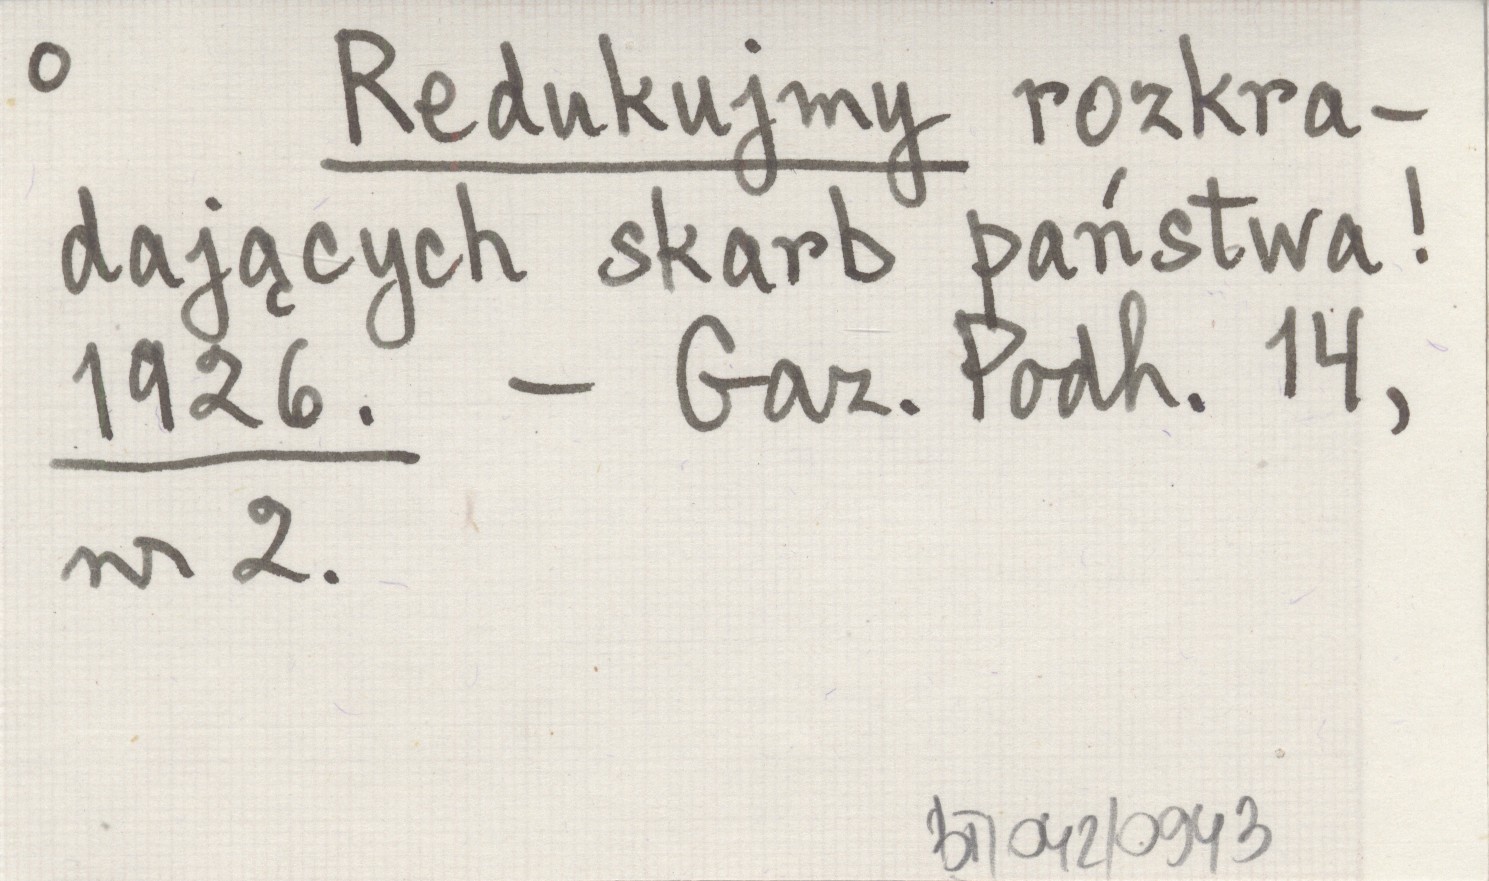 o Redukujmy rozkra-
dających skarb państwa!
1926. - Gaz. Podh. 14,
nr 2.
042/0943